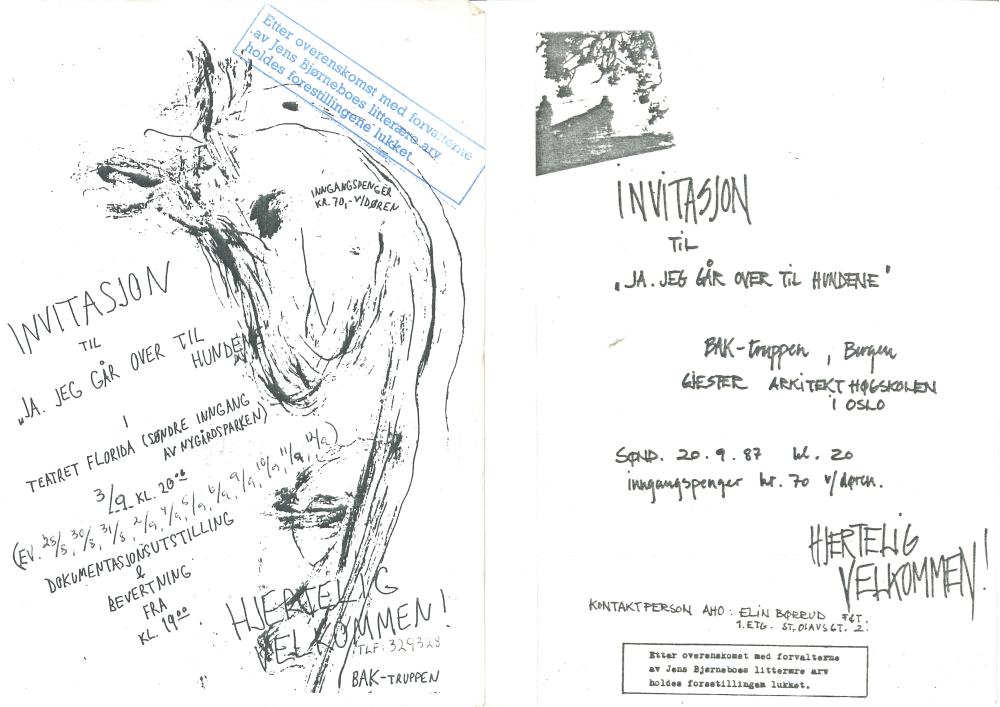 Etter overenskomst med forvalterne
av Jens Bjørneboes litterære arv
holdes forestillingene lukket
INNGANGSPENGER
KR. 70,- V/DØREN
INVITASJON
TIL
„JA. JEG GÅR OVER TIL
HUNDENE"
I
TEATRET FLORIDA (SØNDRE INNGANG
AV NYGÅRDSPARKEN)
3/9 KL. 20⁰⁰
(EV. 25/8, 30/8, 31/8, 2/9, 4/9, 5/9, 6/9, 9/9, 10/9, 11/9, 12/9)
DOKUMENTASJONSUTSTILLING
&
BEVERTNING
FRA
KL. 19⁰⁰
HJERTELIG
VELKOMMEN!
TLF: 329328
BAK-TRUPPEN
INVITASJON
TIL
„JA. JEG GÅR OVER TIL HUNDENE"
BAK-truppen, Bergen
GJESTER ARKITEKTHØGSKOLEN
I OSLO
SØND. 20.9.87 kl. 20
inngangspenger kr. 70 v/døren.
HJERTELIG
VELKOMMEN!
KONTAKTPERSON AHO: ELIN BØRRUD
1. ETG. ST. OLAVSGT. 2.
Etter overenskomst med forvalterne
av Jens Bjørneboes litterære arv
holdes forestillingem lukket.